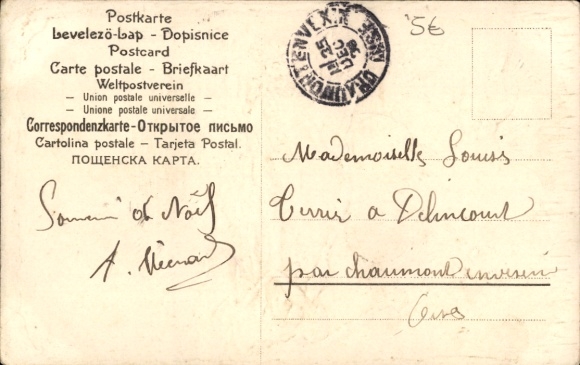 Postkarte
Levelező-Lap - Dopisnice
Postcard
Carte postale - Briefkaart
Weltpostverein
- Union postale universelle -
- Unione postale universale -
Correspondenzkarte - Открытое письмо
Cartolina postale - Tarjeta Postal.
ПОЩЕНСКА КАРТА.
CHAUMONT EN VEXIN
25
DEC
5€
Mademoiselle Louise
à Délincourt
par Chaumont en vexin
Oise
Souvenir de Noël
A.